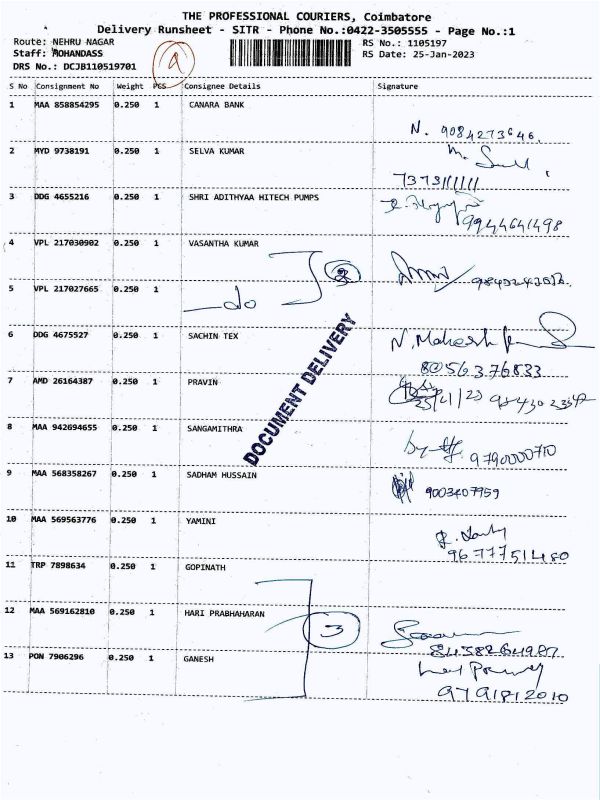 THE PROFESSIONAL COURIERS, Coimbatore
Delivery Runsheet - SITR - Phone No.:0422-3505555 - Page No.:1
Route: NEHRU NAGAR RS No.: 1105197
Staff: MOHANDASS RS Date: 25-Jan-2023
DRS No.: DCJB110519701
S No Consignment No Weight PCS Consignee Details Signature
1 MAA 858854295 0.250 1 CANARA BANK
N. 9084273646.
2 MYD 9738191 0.250 1 SELVA KUMAR
7373111111
3 DDG 4655216 0.250 1 SHRI ADITHYAA HITECH PUMPS
9944641498
4 VPL 217030902 0.250 1 VASANTHA KUMAR
2
5 VPL 217027665 0.250 1
do
6 DDG 4675527 0.250 1 SACHIN TEX
N. Mahesh
8056376833
7 AMD 26164387 0.250 1 PRAVIN
8 MAA 942694655 0.250 1 SANGAMITHRA
9790000710
9 MAA 568358267 0.250 1 SADHAM HUSSAIN
9003407959
DOCUMENT DELIVERY
10 MAA 569563776 0.250 1 YAMINI
9677751480
11 TRP 7898634 0.250 1 GOPINATH
12 MAA 569162810 0.250 1 HARI PRABHAHARAN
3
13 PON 7906296 0.250 1 GANESH
9791812010